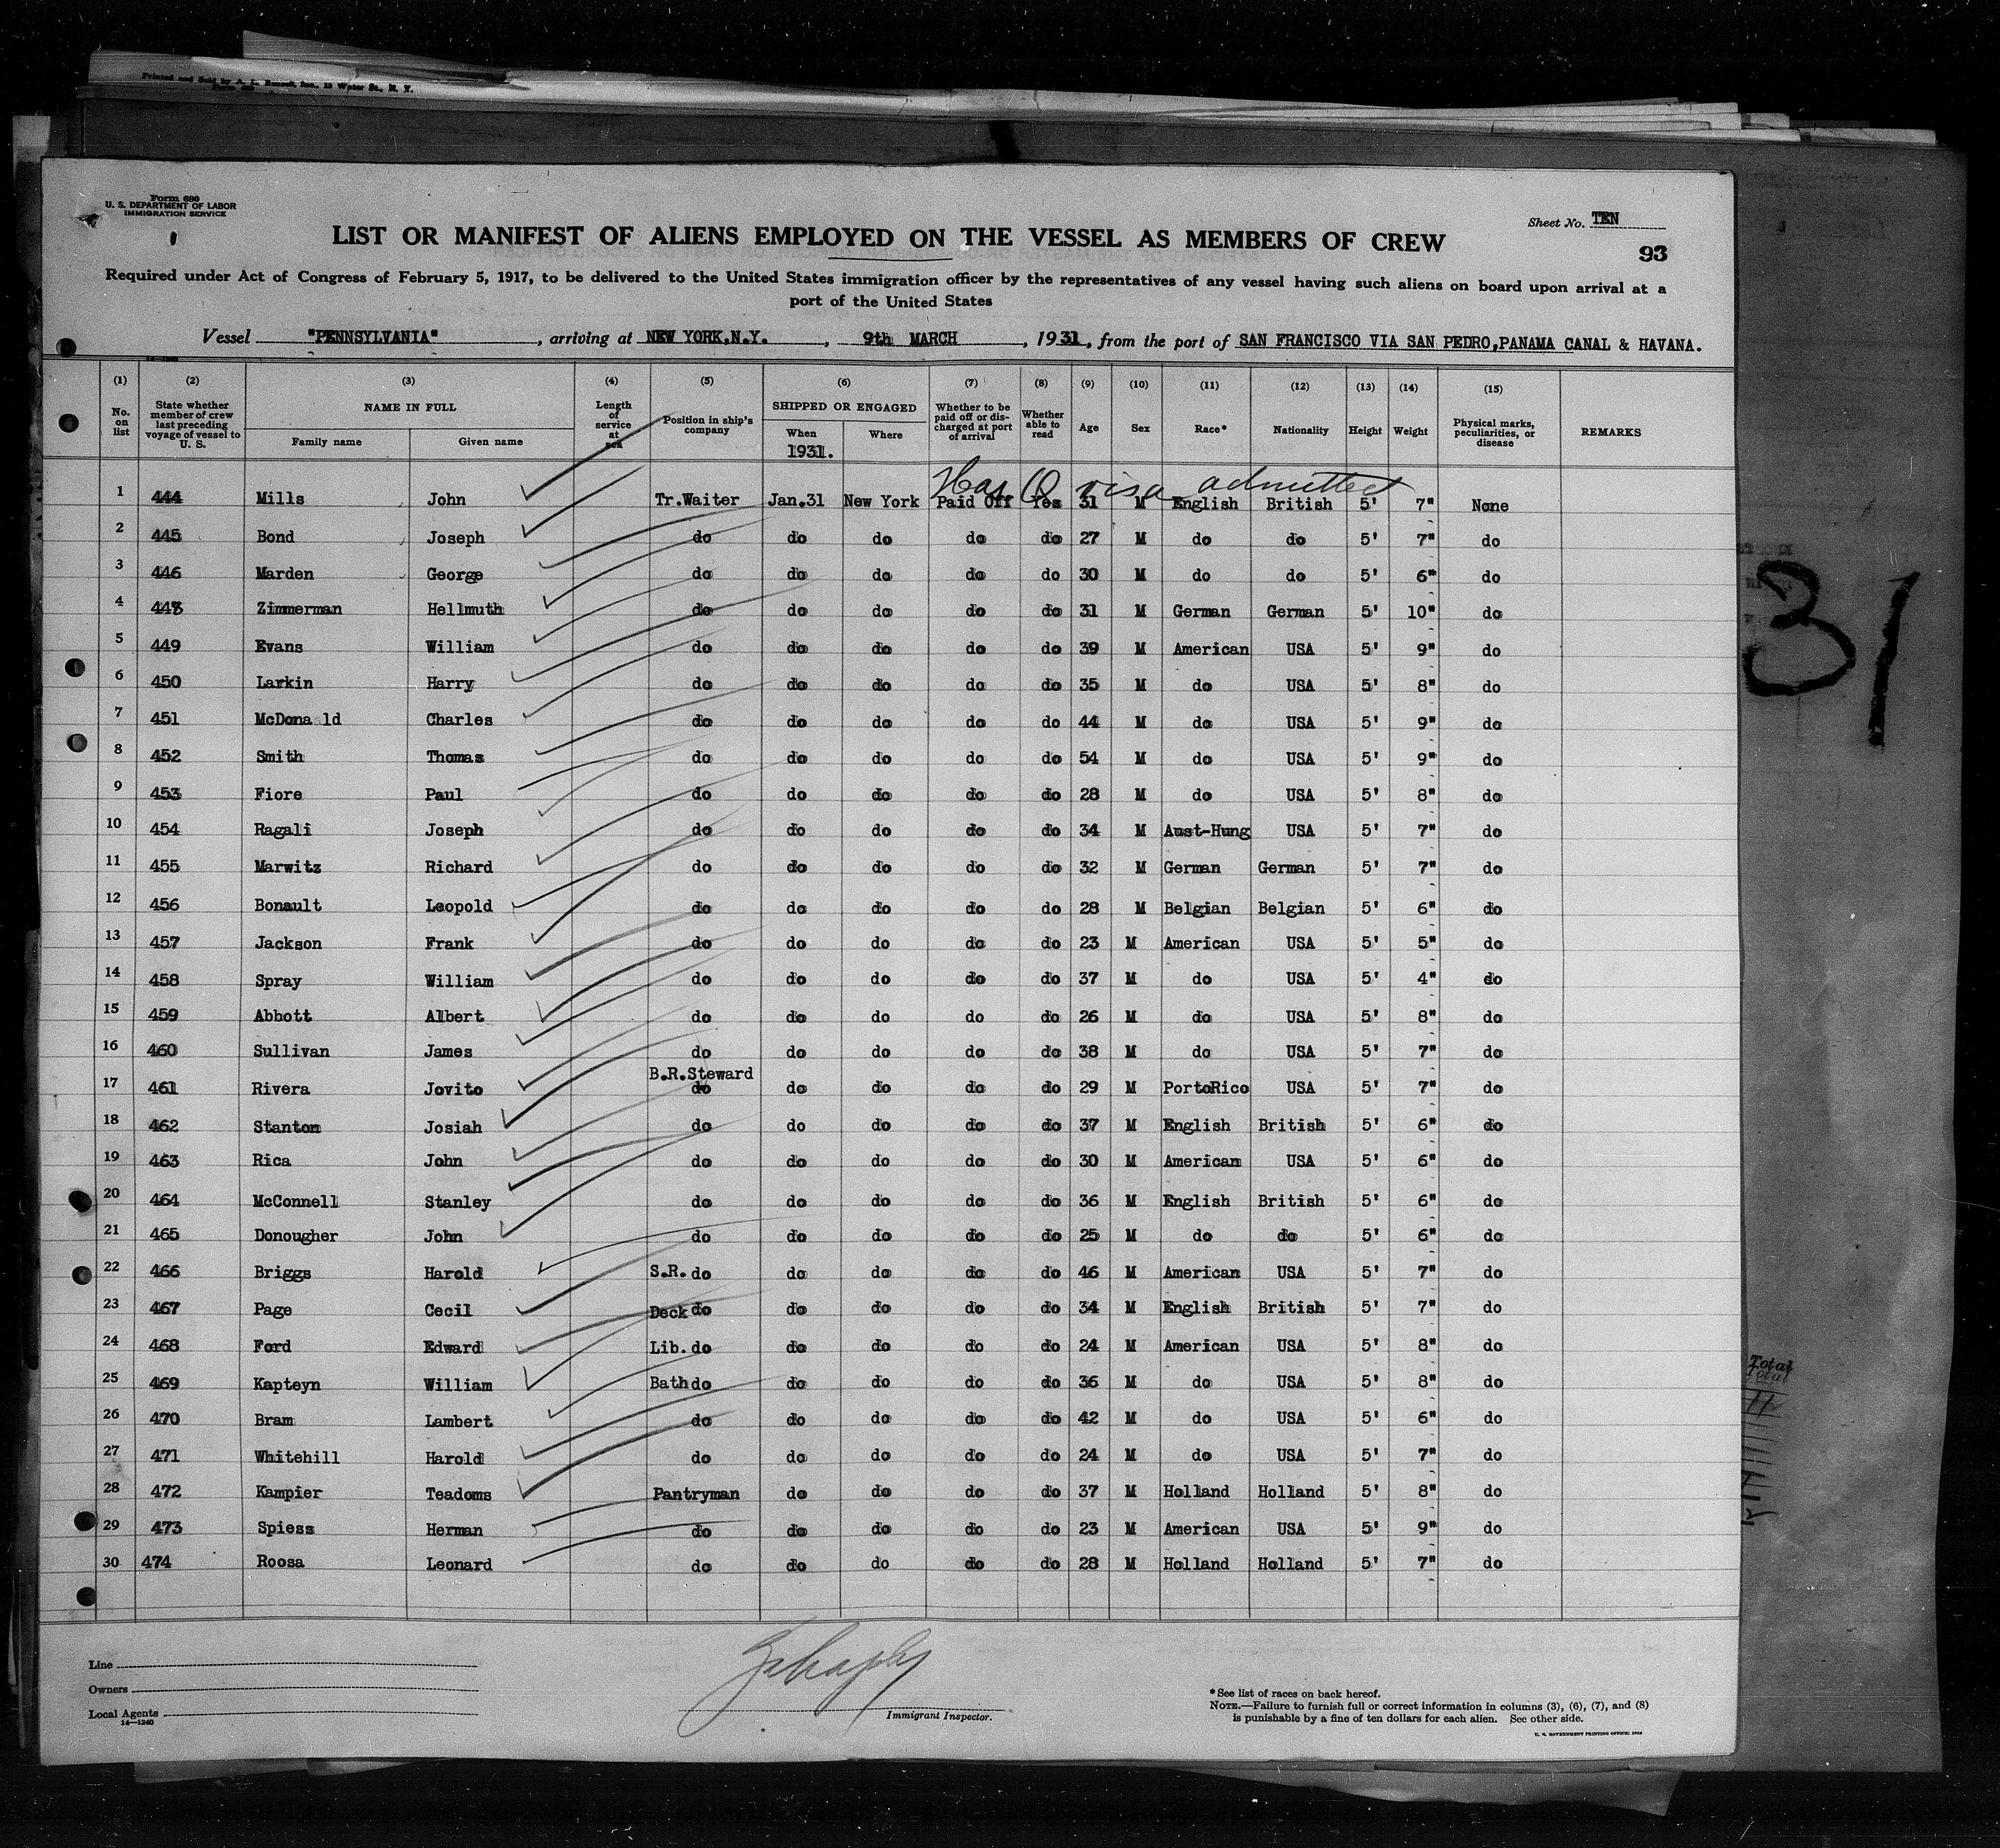 Printed and Sold by A. L. Russell, Inc., 12 Water St., N. Y.
Form 680
U. S. DEPARTMENT OF LABOR
IMMIGRATION SERVICE
Sheet No. TEN
LIST OR MANIFEST OF ALIENS EMPLOYED ON THE VESSEL AS MEMBERS OF CREW
93
Required under Act of Congress of February 5, 1917, to be delivered to the United States immigration officer by the representatives of any vessel having such aliens on board upon arrival at a
port of the United States
Vessel "PENNSYLVANIA", arriving at NEW YORK,N.Y., 9th MARCH, 1931, from the port of SAN FRANCISCO VIA SAN PEDRO,PANAMA CANAL & HAVANA.
(1) (2) (3) (4) (5) (6) (7) (8) (9) (10) (11) (12) (13) (14) (15)
No. on list State whether member of crew last preceding voyage of vessel to U. S. NAME IN FULL Family name Given name Length of service at sea Position in ship's company SHIPPED OR ENGAGED When 1931. Where Whether to be paid off or discharged at port of arrival Whether able to read Age Sex Race* Nationality Height Weight Physical marks, peculiarities, or disease REMARKS
Has Q visa admitted
1 444 Mills John Tr.Waiter Jan.31 New York Paid Off Yes 31 M English British 5' 7" None
2 445 Bond Joseph do do do do do 27 M do do 5' 7" do
3 446 Marden George do do do do do 30 M do do 5' 6" do
4 447 Zimmerman Hellmuth do do do do do 31 M German German 5' 10" do
5 449 Evans William do do do do do 39 M American USA 5' 9" do
6 450 Larkin Harry do do do do do 35 M do USA 5' 8" do
7 451 McDona ld Charles do do do do do 44 M do USA 5' 9" do
8 452 Smith Thomas do do do do do 54 M do USA 5' 9" do
9 453 Fiore Paul do do do do do 28 M do USA 5' 8" do
10 454 Ragali Joseph do do do do do 34 M Aust-Hung USA 5' 7" do
11 455 Marwitz Richard do do do do do 32 M German German 5' 7" do
12 456 Bonault Leopold do do do do do 28 M Belgian Belgian 5' 6" do
13 457 Jackson Frank do do do do do 23 M American USA 5' 5" do
14 458 Spray William do do do do do 37 M do USA 5' 4" do
15 459 Abbott Albert do do do do do 26 M do USA 5' 8" do
16 460 Sullivan James do do do do do 38 M do USA 5' 7" do
B.R.Steward
17 461 Rivera Jovito do do do do do 29 M PortoRico USA 5' 7" do
18 462 Stanton Josiah do do do do do 37 M English British 5' 6" do
19 463 Rica John do do do do do 30 M American USA 5' 6" do
20 464 McConnell Stanley do do do do do 36 M English British 5' 6" do
21 465 Donougher John do do do do do 25 M do do 5' 6" do
22 466 Briggs Harold S.R. do do do do do 46 M American USA 5' 7" do
23 467 Page Cecil Deck do do do do do 34 M English British 5' 7" do
24 468 Ford Edward Lib. do do do do do 24 M American USA 5' 8" do
25 469 Kapteyn William Bath do do do do do 36 M do USA 5' 8" do
26 470 Bram Lambert do do do do do 42 M do USA 5' 6" do
27 471 Whitehill Harold do do do do do 24 M do USA 5' 7" do
28 472 Kampier Teadoms Pantryman do do do do 37 M Holland Holland 5' 8" do
29 473 Spiess Herman do do do do do 23 M American USA 5' 9" do
30 474 Roosa Leonard do do do do do 28 M Holland Holland 5' 7" do
31
Total
Line
Owners
Local Agents
14—1240
Immigrant Inspector.
*See list of races on back hereof.
NOTE.—Failure to furnish full or correct information in columns (3), (6), (7), and (8)
is punishable by a fine of ten dollars for each alien. See other side.
U. S. GOVERNMENT PRINTING OFFICE: 1929